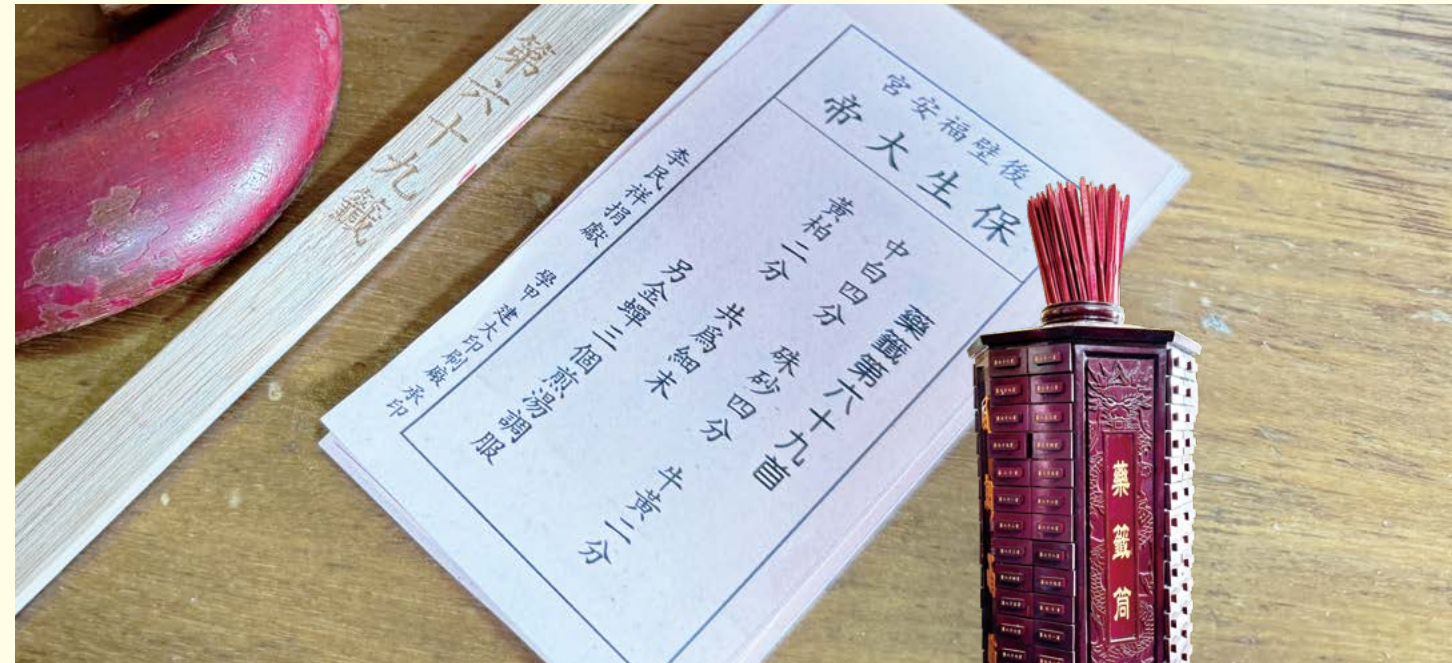 第六十九籤
後壁福安宮
保生大帝
藥籤第六十九首
中白四分 珠砂四分 牛黃二分
黃柏二分 共爲細末
另金蟬三個煎湯調服
李民祥捐獻 學甲 建大印刷廠承印
藥籤筒